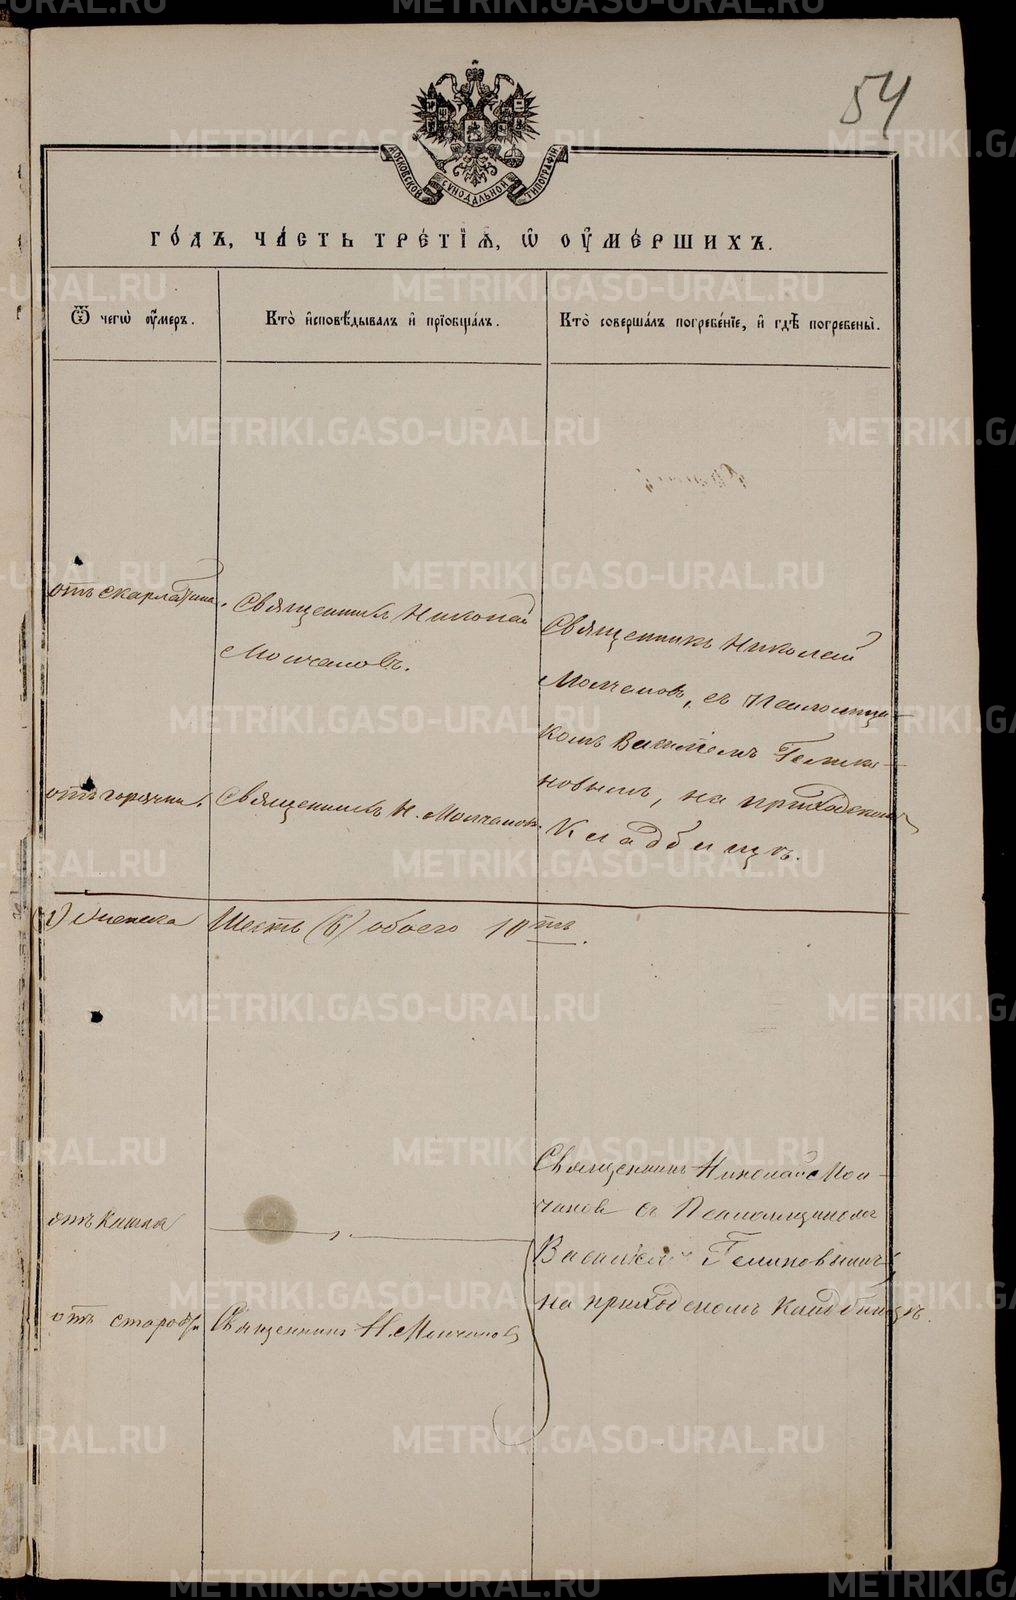 54
МОСКОВСКОЙ СУНОДАЛЬНОЙ ТИПОГРАФІИ
ГО́ДЪ, ЧА́СТЬ ТРЕ́ТІѦ, Ѡ ОУМЕ́РШИХЪ.
Ѿ чегѡ̀ оу́меръ.
Кто̀ и҆сповѣ́дывалъ и҆ прїобща́лъ.
Кто̀ соверша́лъ погребе́нїе, и҆ гдѣ̀ погребены̀.
отъ скарлатина.
Священникъ Николай
Молчановъ.
Священникъ Николай
Молчановъ, съ Псаломщи-
комъ Василіемъ
новымъ, на приходскомъ
Кладбищѣ.
отъ горячки.
Священникъ Н. Молчановъ
Женска Шесть (6) обоего 10ть.
отъ кашля
Священникъ Николай Мол-
чановъ съ Псаломщикомъ
на приходскомъ кладбищѣ.
отъ старости
Священникъ Н. Молчановъ
METRIKI.GASO-URAL.RU